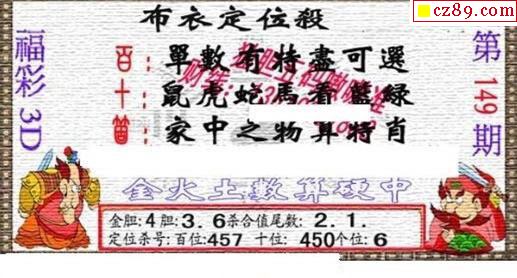 cz89.com
布衣定位殺
福彩3D
第149期
百：單數有特盡可選
十：鼠虎蛇馬看藍緑
箇：家中之物算特肖
金火土數算硬中
金胆:4胆:3.6杀合值尾数:2.1.
定位杀号:百位:457 十位: 450个位:6